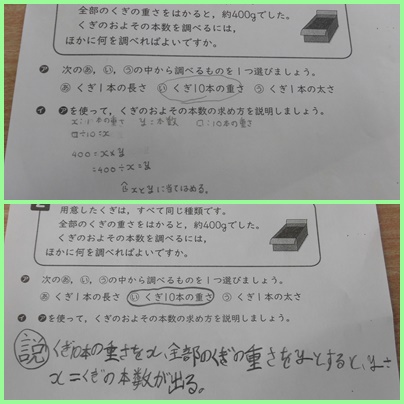 全部のくぎの重さをはかると，約400gでした。
くぎのおよその本数を調べるには，
ほかに何を調べればよいですか。
ア 次のあ，い，うの中から調べるものを1つ選びましょう。
あ くぎ1本の長さ い くぎ10本の重さ う くぎ1本の太さ
イ アを使って，くぎのおよその本数の求め方を説明しましょう。
x:1本の重さ y:本数 □:10本の重さ
□÷10=x
400=x×y
=400÷x=y
xとyに当てはめる。
用意したくぎは，すべて同じ種類です。
全部のくぎの重さをはかると，約400gでした。
くぎのおよその本数を調べるには，
ほかに何を調べればよいですか。
ア 次のあ，い，うの中から調べるものを1つ選びましょう。
あ くぎ1本の長さ い くぎ10本の重さ う くぎ1本の太さ
イ アを使って，くぎのおよその本数の求め方を説明しましょう。
説 くぎ10本の重さをx，全部のくぎの重さをyとすると，y÷
x=くぎの本数が出る。